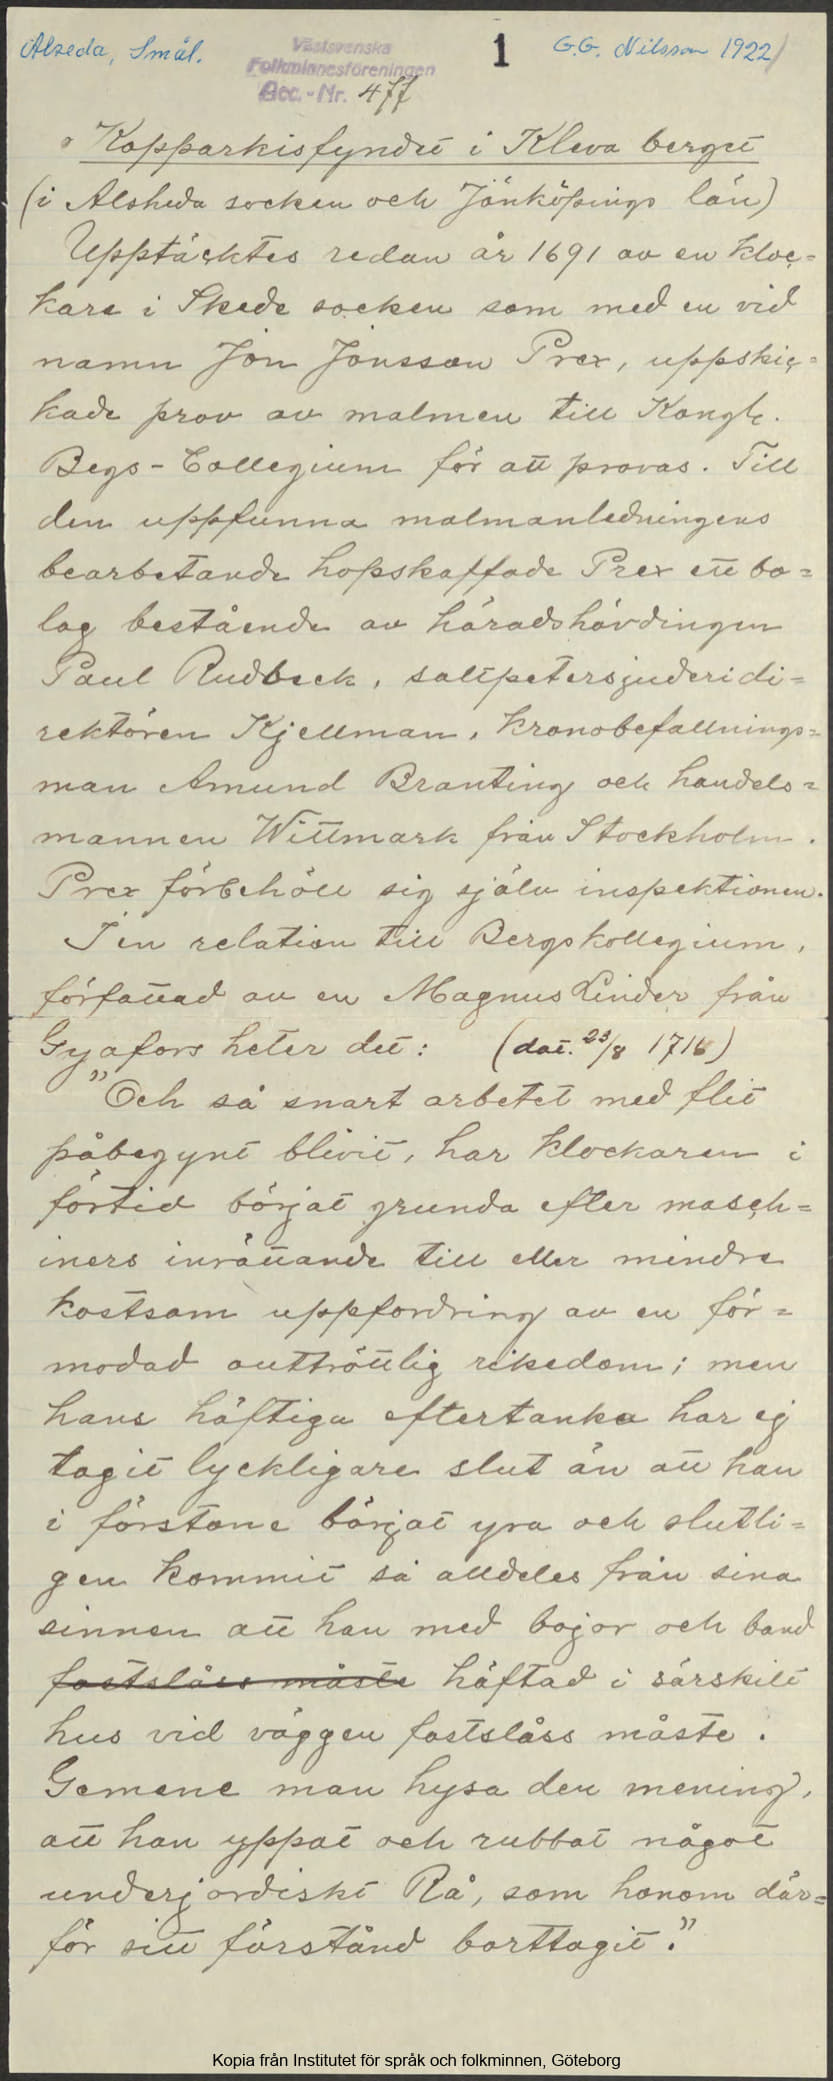 Alseda, Smål.
Västsvenska
Folkminnesföreningen
Acc.-Nr. 477
1
G.G. Nilsson 1922
Kopparkisfyndet i Kleva berget
(i Alsheda socken och Jönköpings län)
Upptäcktes redan år 1691 av en kloc=
kare i Skede socken som med en vid
namn Jon Jonsson Prex, uppskic=
kade prov av malmen till Kongl.
Begs-Collegium för att provas. Till
den uppfunna malmanledningens
bearbetande hopskaffade Prex ett bo=
lag bestående av häradshövdingen
Paul Rudbeck, saltpetersjuderidi=
rektören Kjellman, kronobefallnings=
man Amund Branting och handels=
mannen Wittmark från Stockholm.
Prex förbehöll sig själv inspektionen.
I en relation till Bergskollegium,
författad av en Magnus Linder från
Gyafors heter det: (dat. 23/8 1716)
"Och så snart arbetet med flit
påbegynt blivit, har klockaren i
förtid börjat grunda efter masch=
iners inrättande till eller mindre
kostsam uppfordring av en för=
modad outtröttlig rikedom; men
hans häftiga eftertanka har ej
tagit lyckligare slut än att han
i förstone börjat yra och slutli=
gen kommit så alldeles från sina
sinnen att han med bojor och band
fastslåss måste häftad i särskilt
hus vid väggen fastslåss måste.
Gemene man hysa den mening,
att han yppat och rubbat något
underjordiskt Rå, som honom där=
för sitt förstånd borttagit."
Kopia från Institutet för språk och folkminnen, Göteborg